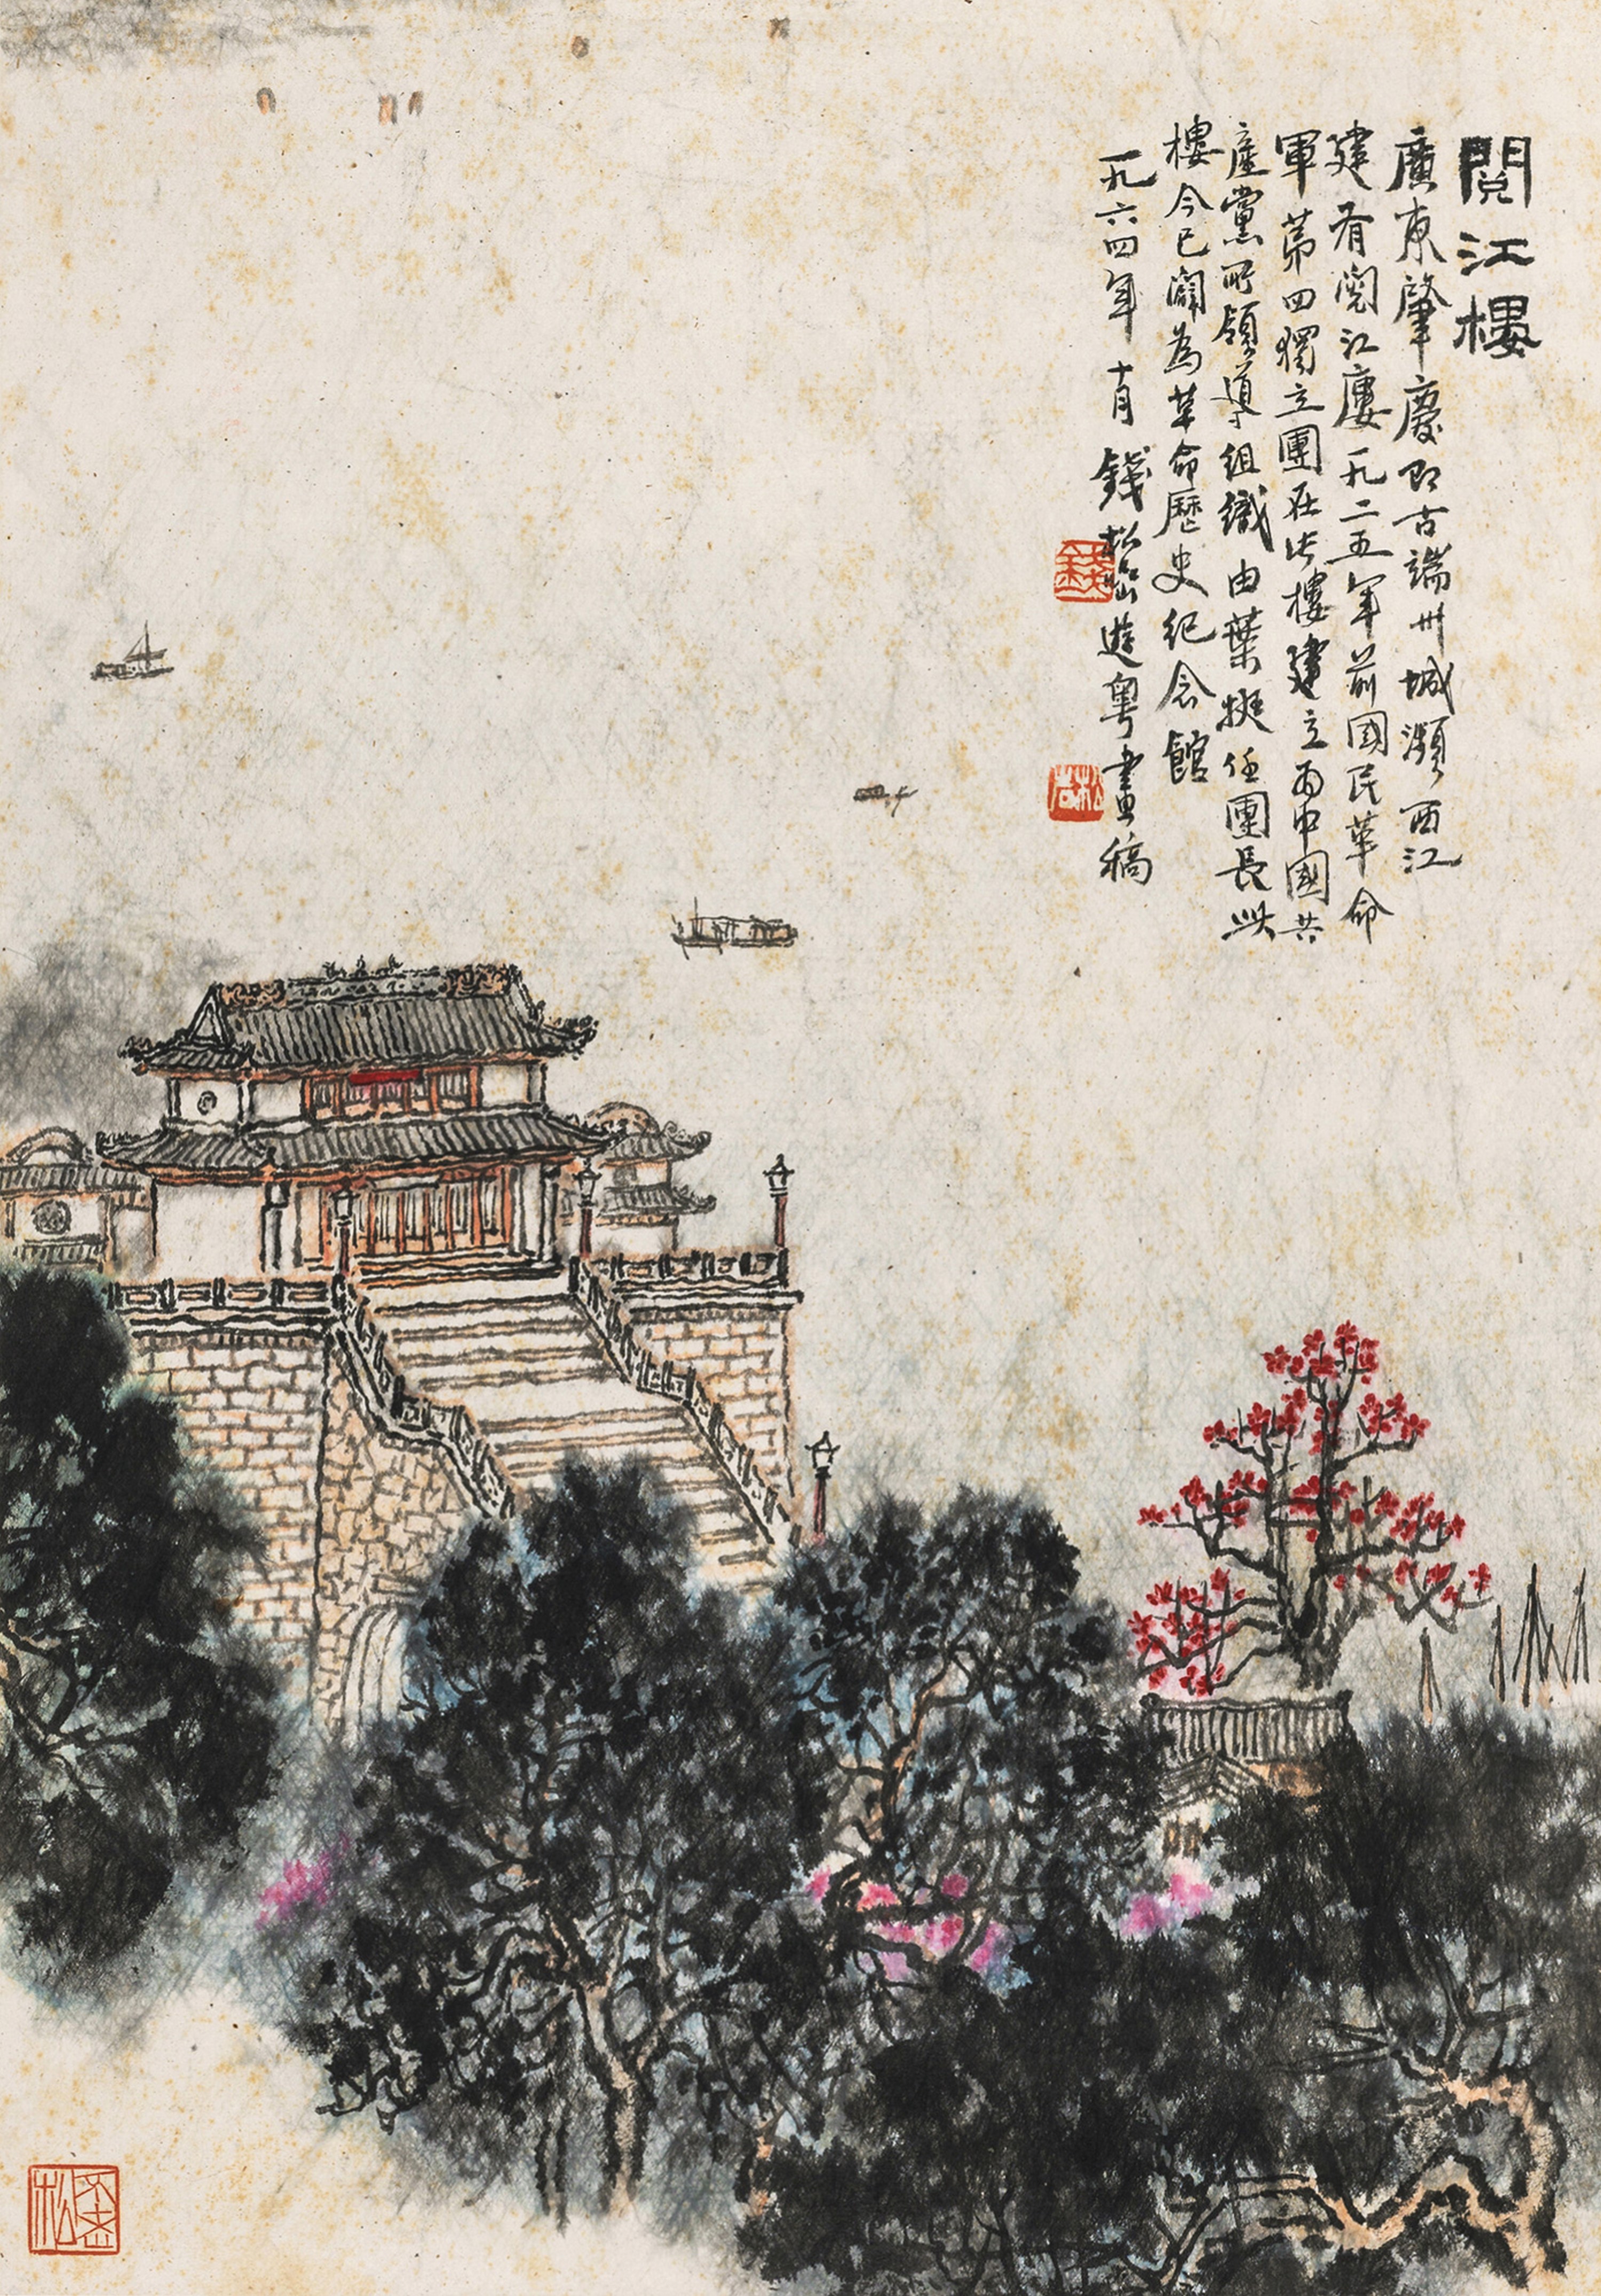 閱江樓
廣東肇慶即古端州城瀕西江
建有閱江樓一九二五年前國民革命
軍第四獨立團在此樓建立為中國共
產黨所領導組織由葉挺任團長此
樓今已闢為革命歷史紀念館
一九六四年十月錢松喦遊粵畫稿
錢